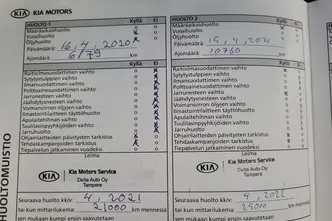 KIA KIA MOTORS
HUOLTO 1
Kyllä Ei
Määräaikaishuolto
Vuosihuolto
Öljyhuolto
Päivämäärä: 16,4,2020
Ajomäärä: 6179 km
Kyllä Ei
Raitisilmasuodattimen vaihto
Sytytystulppien vaihto
Ilmansuodattimen vaihto
Polttoainesuodattimen vaihto
Jarrunesteen vaihto
Jäähdytysnesteen vaihto
Voimansiirron öljyjen vaihto
Ilmastointilaitteen täyttöhuolto
Apulaitehihnan vaihto
Tuulilasinpyyhkijöiden vaihto
Jarruhuolto
Ohjainlaitteiden päivitysten tarkistus
Tehdaskampanjoiden tarkistus
Tiepalvelun jatkaminen vuodeksi
Leima
KIA Kia Motors Service
Delta Auto Oy
Tampere
Seuraava huolto kk/v: 4, 2021
tai kun mittarilukema: 21000 km mennessä
sen mukaan kumpi ensin saavutetaan
HUOLTO 2
Kyllä Ei
Määräaikaishuolto
Vuosihuolto
Öljyhuolto
Päivämäärä: 15,4,2021
Ajomäärä: 10760 km
Kyllä Ei
Raitisilmasuodattimen vaihto
Sytytystulppien vaihto
Ilmansuodattimen vaihto
Polttoainesuodattimen vaihto
Jarrunesteen vaihto
Jäähdytysnesteen vaihto
Voimansiirron öljyjen vaihto
Ilmastointilaitteen täyttöhuolto
Apulaitehihnan vaihto
Tuulilasinpyyhkijöiden vaihto
Jarruhuolto
Ohjainlaitteiden päivitysten tarkistus
Tehdaskampanjoiden tarkistus
Tiepalvelun jatkaminen vuodeksi
Leima
KIA Kia Motors Service
Delta Auto Oy
Tampere
Seuraava huolto kk/v: 4, 2022
tai kun mittarilukema: 25000 km mennessä
sen mukaan kumpi ensin saavutetaan
HUOLTOMUISTIO